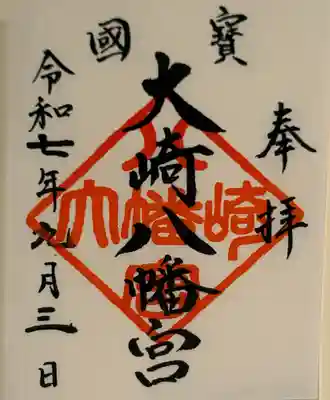 奉拝
國寳
大崎八幡宮
令和七年九月三日
大崎八幡宮